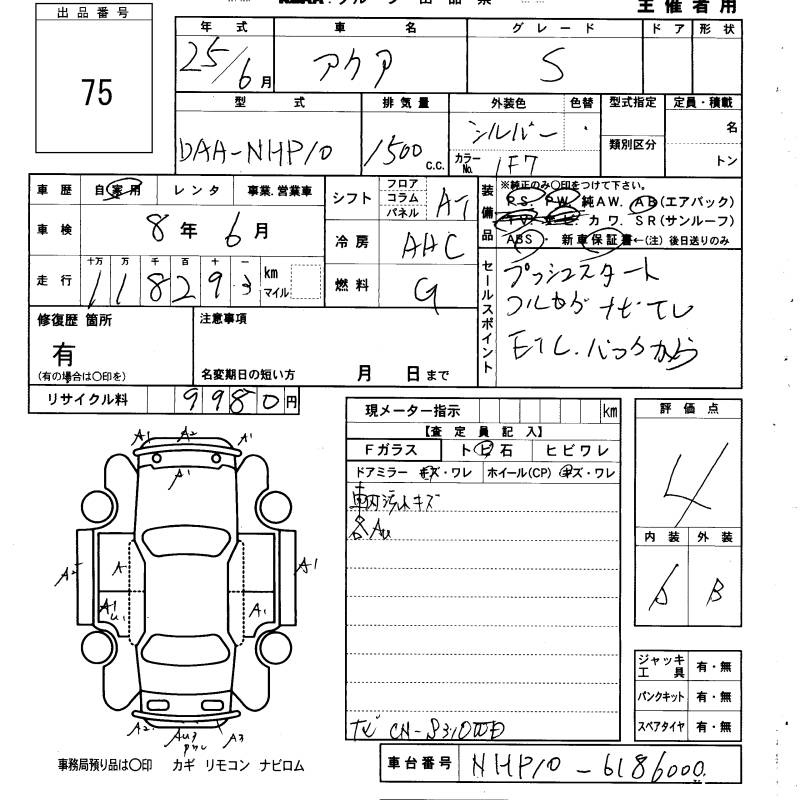 出品番号
75
主催者用
年式 車名 グレード ドア 形状
25/6月 アクア S
型式 排気量 外装色 色替 型式指定 定員・積載
DAA-NHP10 1500 c.c. シルバー ・ 類別区分 名
カラーNo. 1F7 トン
車歴 自家用 レンタ 事業.営業車
車検 8年 6月
走行 十万 万 千 百 十 一 km マイル
118293
シフト フロア コラム パネル AT
冷房 AAC
燃料 G
装備品 ※純正のみ〇印をつけて下さい。
P.S. P.W. 純AW. AB(エアバック)
T.V. ナビ カワ. SR(サンルーフ)
ABS・ 新車保証書←(注) 後日送りのみ
セールスポイント
プッシュスタート
フルセグ ナビTV
ETC. バックカメラ
修復歴 箇所
有
(有の場合は〇印を)
注意事項
名変期日の短い方 月 日まで
リサイクル料 9980円
現メーター指示 km
【査定員記入】
Fガラス トビ石 ヒビワレ
ドアミラー キズ・ワレ ホイール(CP) キズ・ワレ
車内汚れキズ
各AU
評価点
4
内装 外装
B
A1 A2 A1
A1
A2 A A1
A1 U1 A1
A2 AU3 A3
ジャッキ工具 有・無
パンクキット 有・無
スペアタイヤ 有・無
ナビ CN-S310WD
事務局預り品は〇印 カギ リモコン ナビロム
車台番号 NHP10-6186000